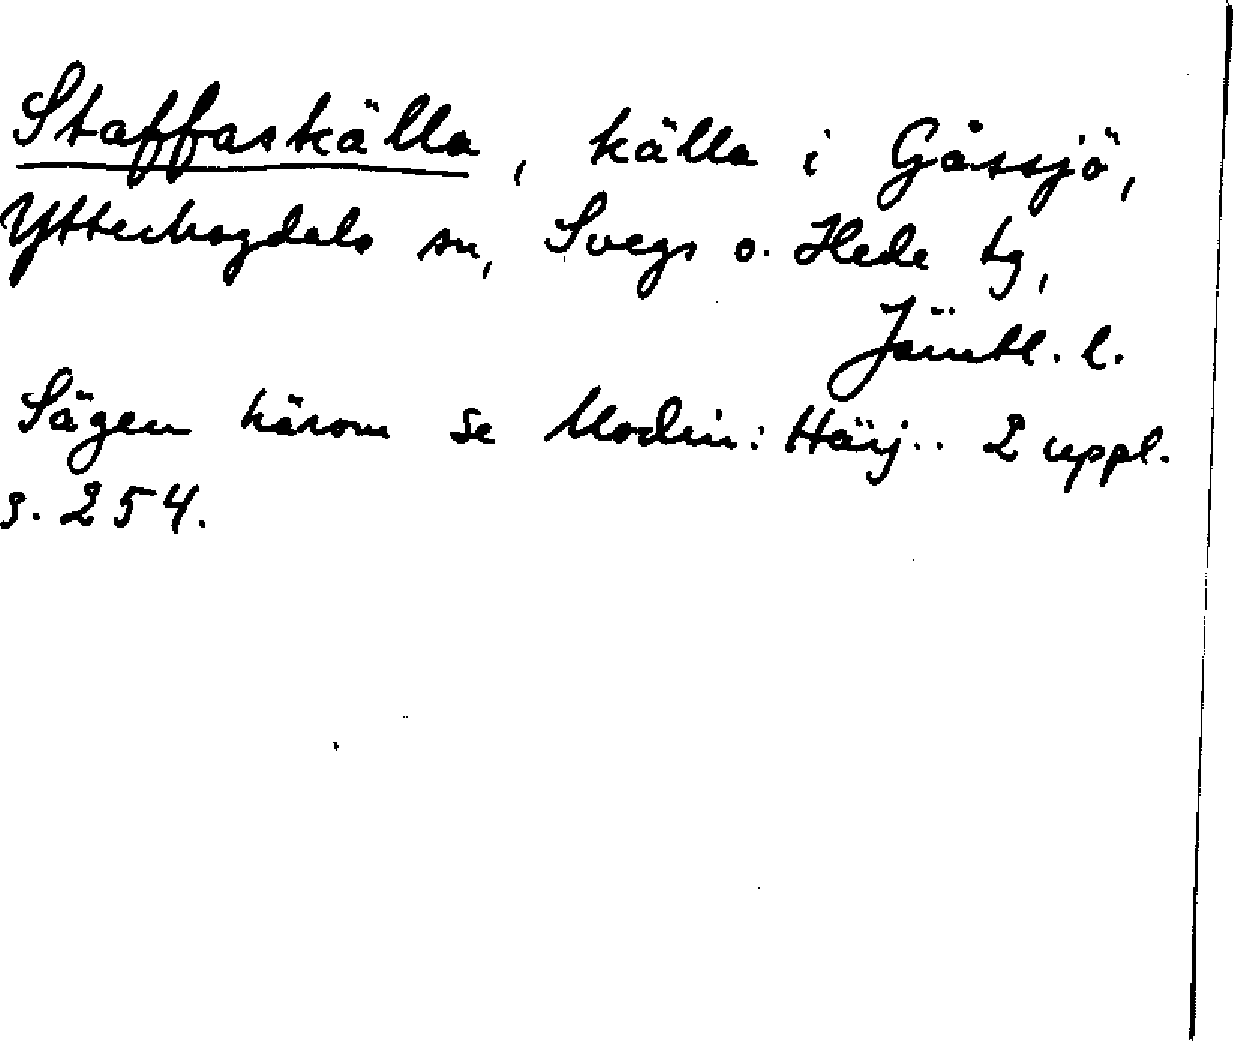 Staffaskälla, källa i Gåssjö,
Ytterhogdals sn, Svegs o. Hede tg,
Jämtl. l.
Sägen härom se Modin: Härj.. 2 uppl.
s. 254.